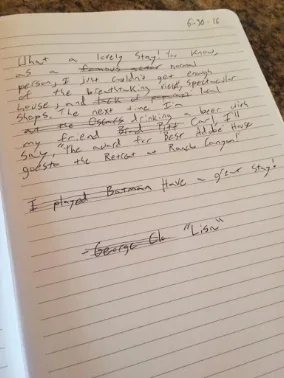 6-30-16
What a lovely stay! You know,
as a famous actor normal
person, I just couldn't get enough
of the breathtaking views, spectacular
house, and lack of paparazzi local
shops. The next time I'm
at the Oscars drinking a beer with
my friend Brad Pitt Carl I'll
say, "The award for Best Adobe House
goes to the Retreat at Rancho Canyon!"
I played Batman Have a great stay!
- George Clo "Lisa"